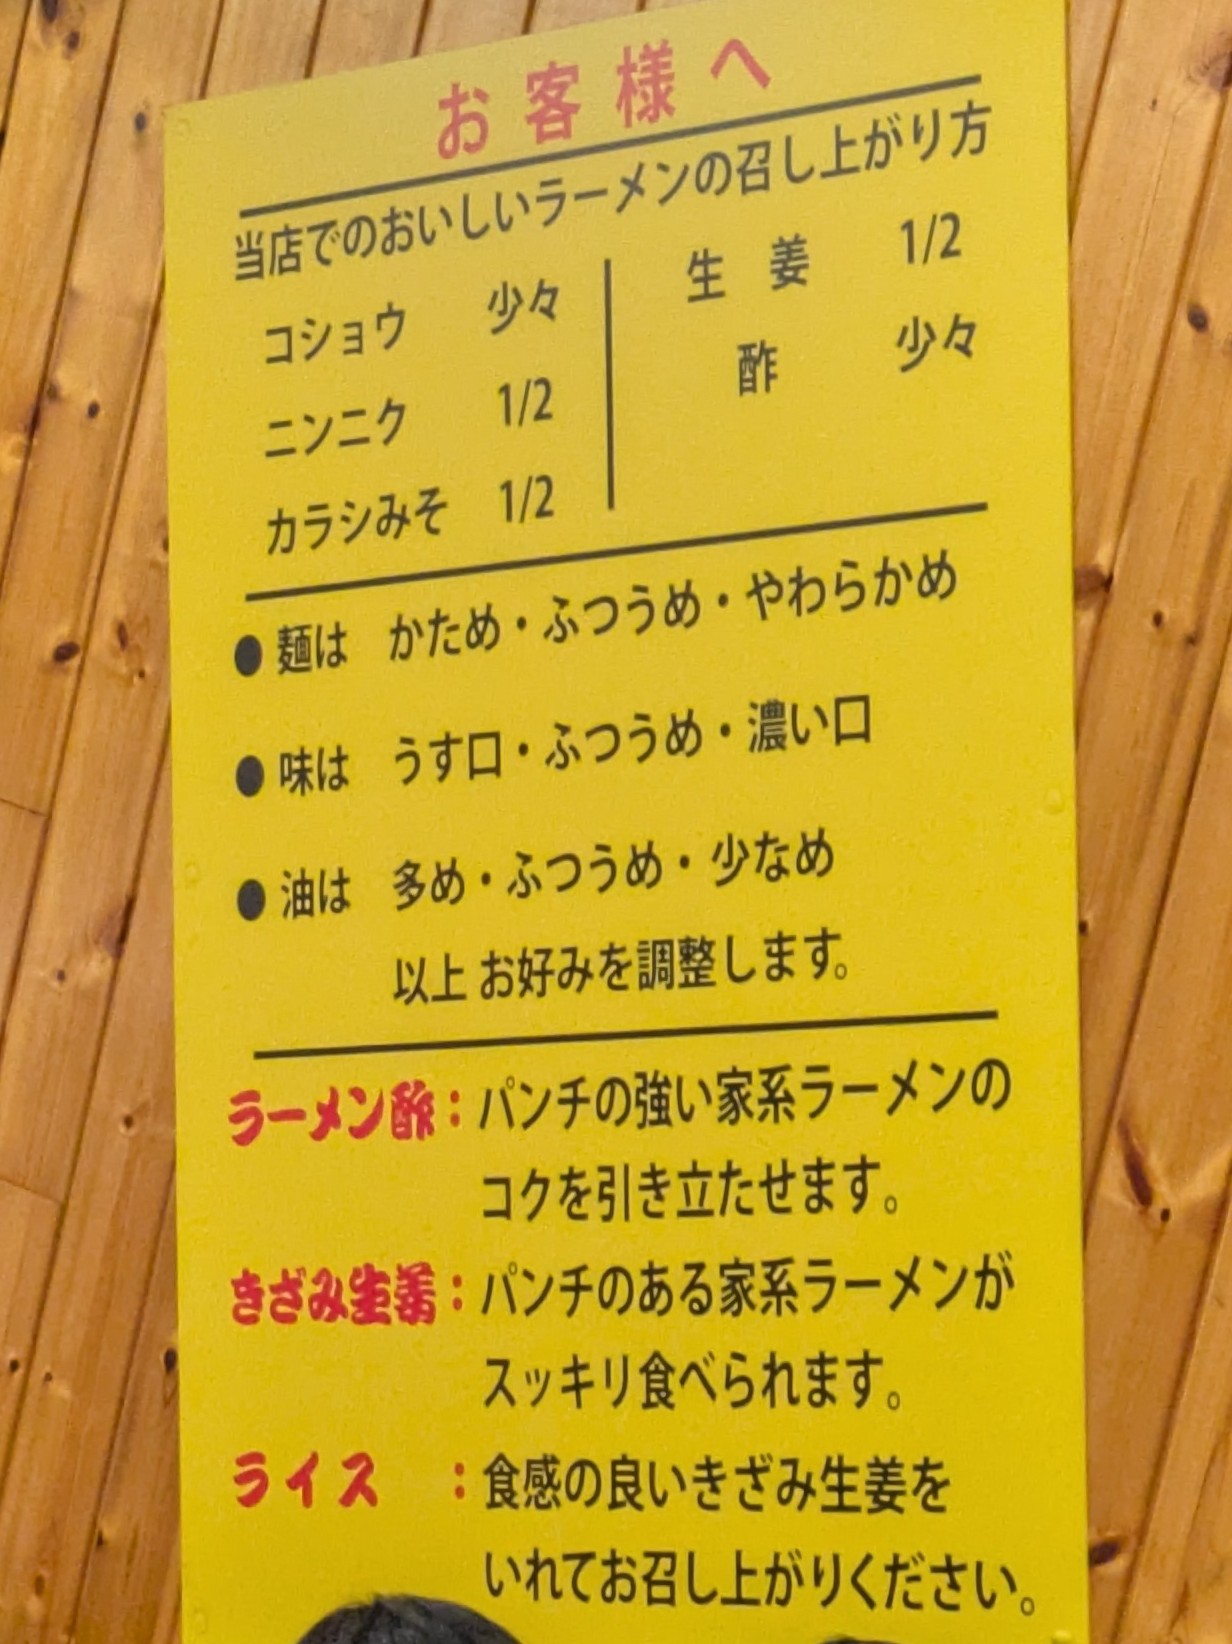 お客様へ
当店でのおいしいラーメンの召し上がり方
コショウ 少々
ニンニク 1/2
カラシみそ 1/2
生姜 1/2
酢 少々
● 麺は かため・ふつうめ・やわらかめ
● 味は うす口・ふつうめ・濃い口
● 油は 多め・ふつうめ・少なめ
以上 お好みを調整します。
ラーメン酢：パンチの強い家系ラーメンの
コクを引き立たせます。
きざみ生姜：パンチのある家系ラーメンが
スッキリ食べられます。
ライス ：食感の良いきざみ生姜を
いれてお召し上がりください。